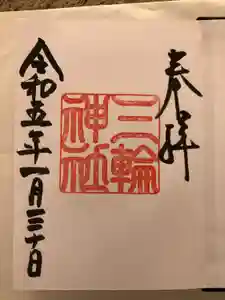 奉拝
三輪神社
令和五年一月三十日